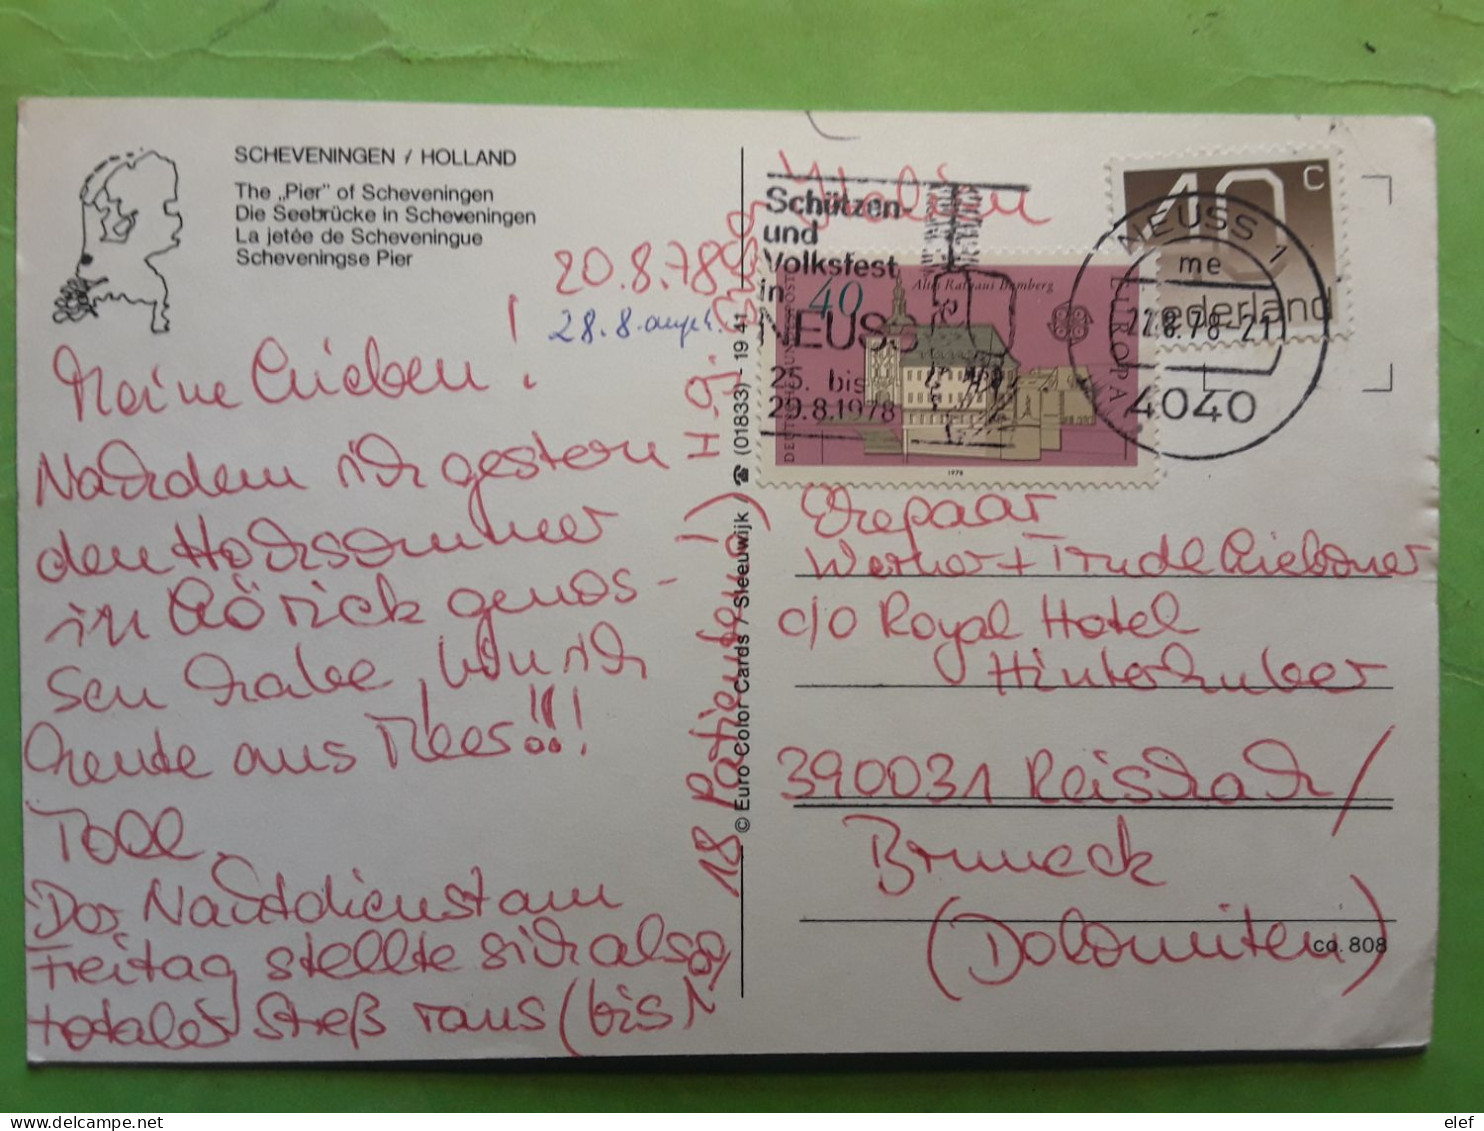 SCHEVENINGEN / HOLLAND
The „Pier" of Scheveningen
Die Seebrücke in Scheveningen
La jetée de Scheveningue
Scheveningse Pier
20.8.78
28.8.
Meine Lieben!
Nachdem ich gestern
den Hochsommer
in Lörick genos-
sen habe, bin ich
heute ans Meer!!!
Toll.
Der Nachtdienst am
Freitag stellte sich als
totaler Streß raus (bis
18 Patienten!)
© Euro Color Cards / Sleeuwijk ☎ (01833) - 19 41
Italien
Schützen-
und
Volksfest
in
NEUSS
25. bis
29.8.1978
DEUTSCHE BUNDESPOST
40
Altes Rathaus Bamberg
EUROPA
1978
40 c
nederland
NEUSS 1
me
22.8.78-21
4040
Ehepaar
Werner + Trudl
c/o Royal Hotel
Hinterhuber
390031 Reischach/
Bruneck
(Dolomiten)
co. 808
elef